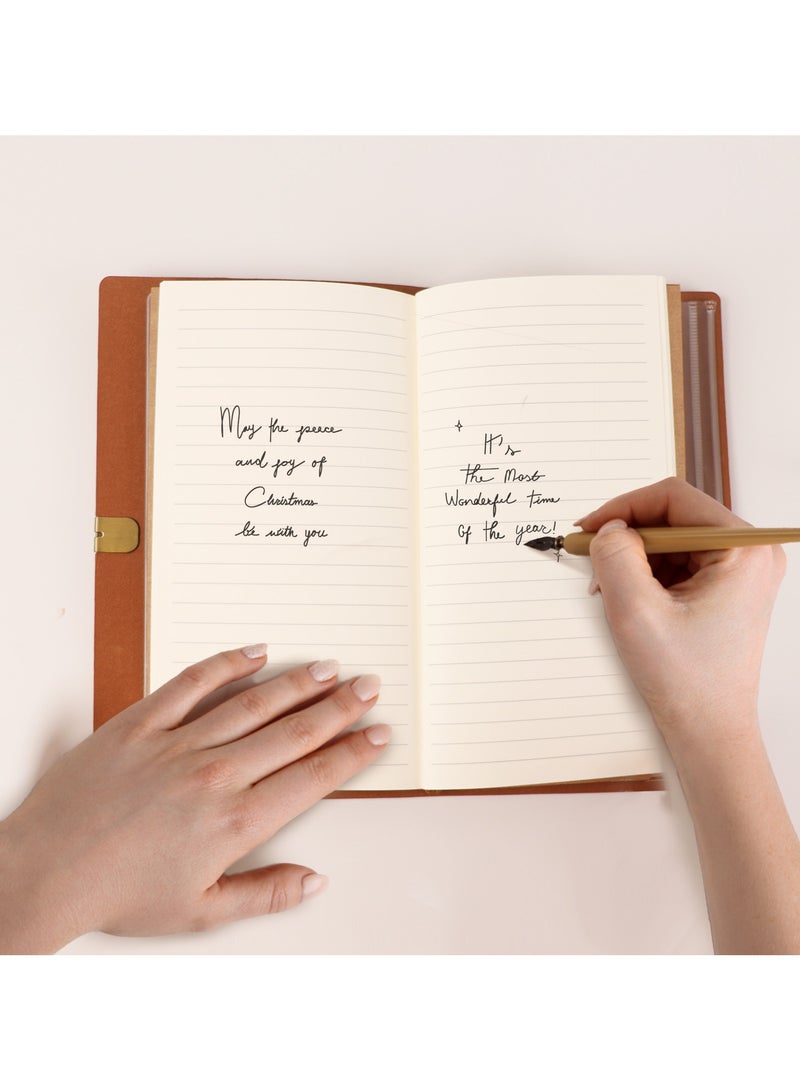 May the peace
and joy of
Christmas
be with you
It's
The Most
Wonderful Time
Of the year!